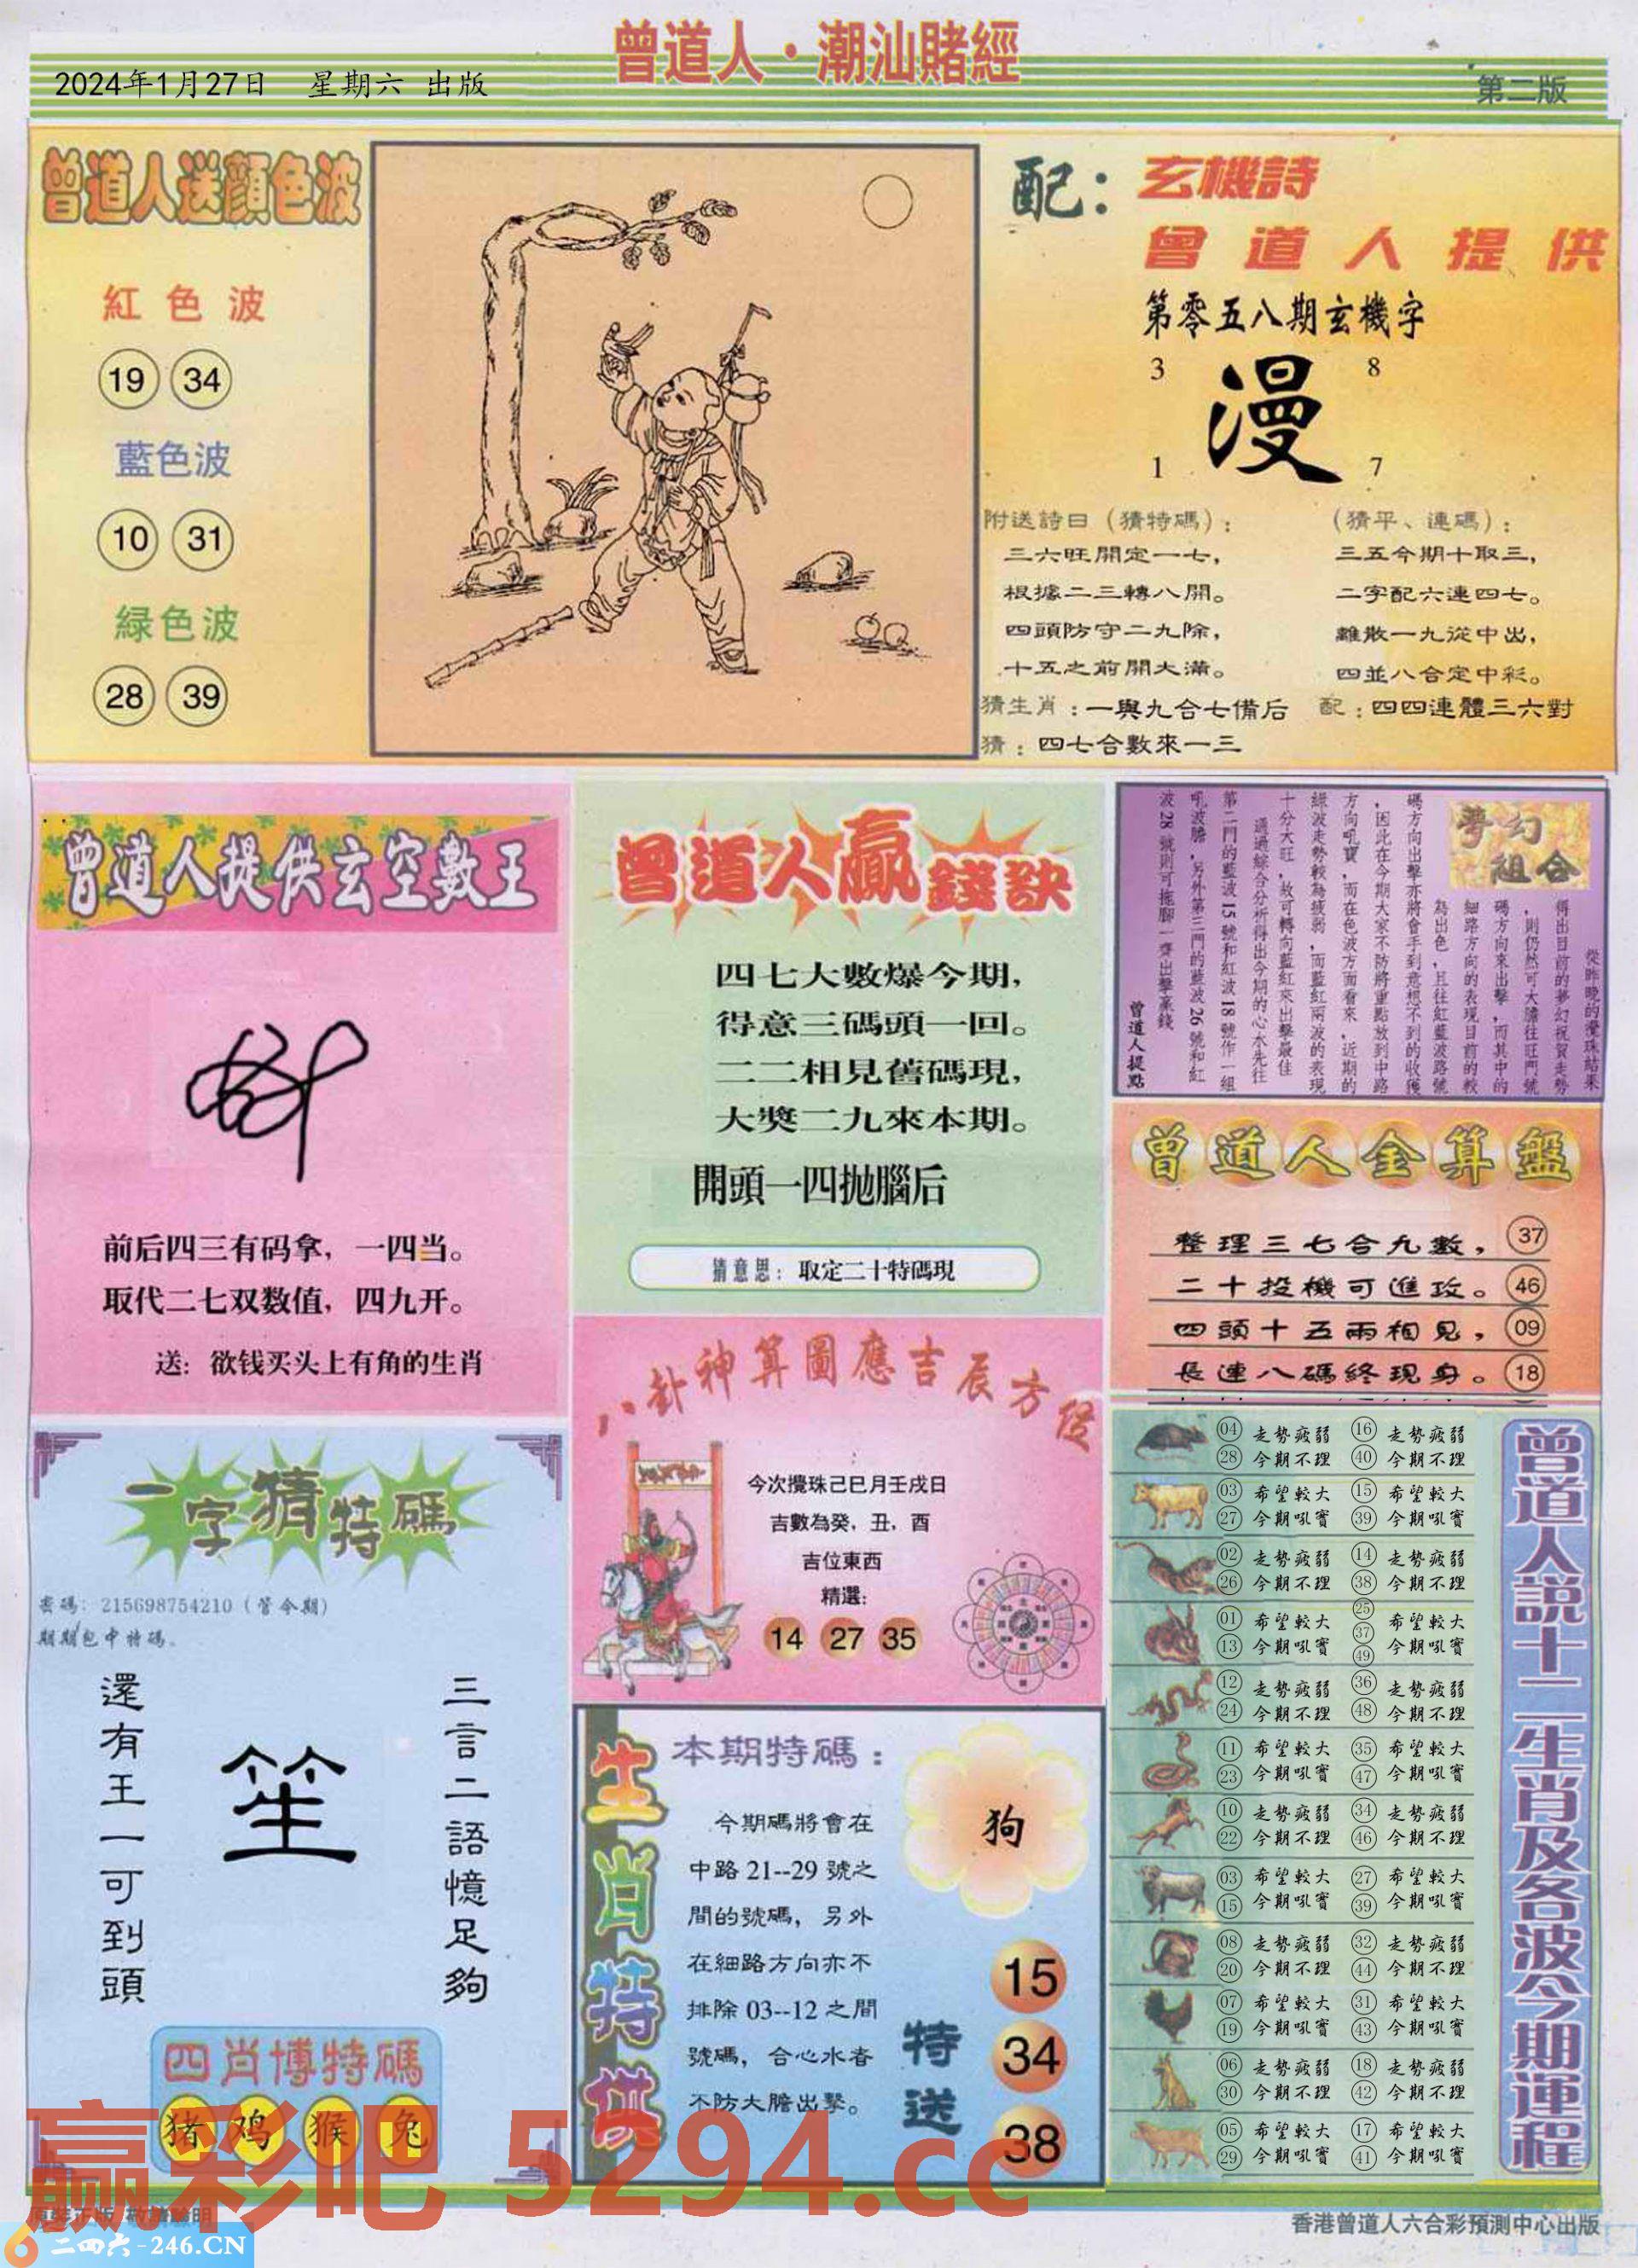 曾道人·潮汕賭經
2024年1月27日 星期六 出版
第二版
曾道人送顏色波
紅色波
19 34
藍色波
10 31
緑色波
28 39
配：
玄機詩
曾道人提供
第零五八期玄機字
3 8
漫
1 7
附送詩曰（猜特碼）：
三六旺開定一七，
根據二三轉八開。
四頭防守二九除，
十五之前開大滿。
（猜平、連碼）：
三五今期十取三，
二字配六連四七。
離散一九從中出，
四並八合定中彩。
猜生肖：一與九合七備后
配：四四連體三六對
猜：四七合數來一三
曾道人提供玄空數王
前后四三有码拿，一四当。
取代二七双数值，四九开。
送：欲钱买头上有角的生肖
曾道人贏錢訣
四七大數爆今期，
得意三碼頭一回。
二二相見舊碼現，
大獎二九來本期。
開頭一四抛腦后
猜意思：取定二十特碼現
夢幻組合
從昨晚的攪珠結果
得出目前的夢幻祝賀走勢
，則仍然可大膽往旺門號
碼方向來出擊，而其中的
細路方向的表現目前的較
為出色，且往紅藍波路號
碼方向出擊亦將會手到意想不到的收獲
，因此在今期大家不防將重點放到中路
方向吼寶，而在色波方面看來，近期的
緑波走勢較為疲弱，而藍紅兩波的表現
十分大旺，故可轉向藍紅來出擊最佳
通過綜合分析得出今期的心水先往
第二門的藍波15號和紅波18號作一組
吼波膽，另外第三門的藍波26號和紅
波28號則可拖脚一齊出擊贏錢
曾道人提點
曾道人金算盤
整理三七合九數， 37
二十投機可進攻。 46
四頭十五兩相見， 09
長連八碼終現身。 18
八卦神算圖應吉辰方位
今次攪珠己巳月壬戌日
吉數為癸，丑，酉
吉位東西
精選：
14 27 35
一字猜特碼
密碼：215698754210（管今期）
期期包中特碼。
三言二語憶足夠
笙
還有王一可到頭
四肖博特碼
猪 鸡 猴 兔
生肖特供
本期特碼：
今期碼將會在
中路21--29號之
間的號碼，另外
在細路方向亦不
排除03--12之間
號碼，合心水者
不防大膽出擊。
狗
特送
15
34
38
曾道人說十二生肖及各波今期運程
04 走勢疲弱 16 走勢疲弱
28 今期不理 40 今期不理
03 希望較大 15 希望較大
27 今期吼實 39 今期吼實
02 走勢疲弱 14 走勢疲弱
26 今期不理 38 今期不理
01 希望較大 25 37 希望較大
13 今期吼實 49 今期吼實
12 走勢疲弱 36 走勢疲弱
24 今期不理 48 今期不理
11 希望較大 35 希望較大
23 今期吼實 47 今期吼實
10 走勢疲弱 34 走勢疲弱
22 今期不理 46 今期不理
03 希望較大 27 希望較大
15 今期吼實 39 今期吼實
08 走勢疲弱 32 走勢疲弱
20 今期不理 44 今期不理
07 希望較大 31 希望較大
19 今期吼實 43 今期吼實
06 走勢疲弱 18 走勢疲弱
30 今期不理 42 今期不理
05 希望較大 17 希望較大
29 今期吼實 41 今期吼實
赢彩吧 5294.cc
原裝正版 敬請聆明
二四六-246.CN
香港曾道人六合彩預測中心出版